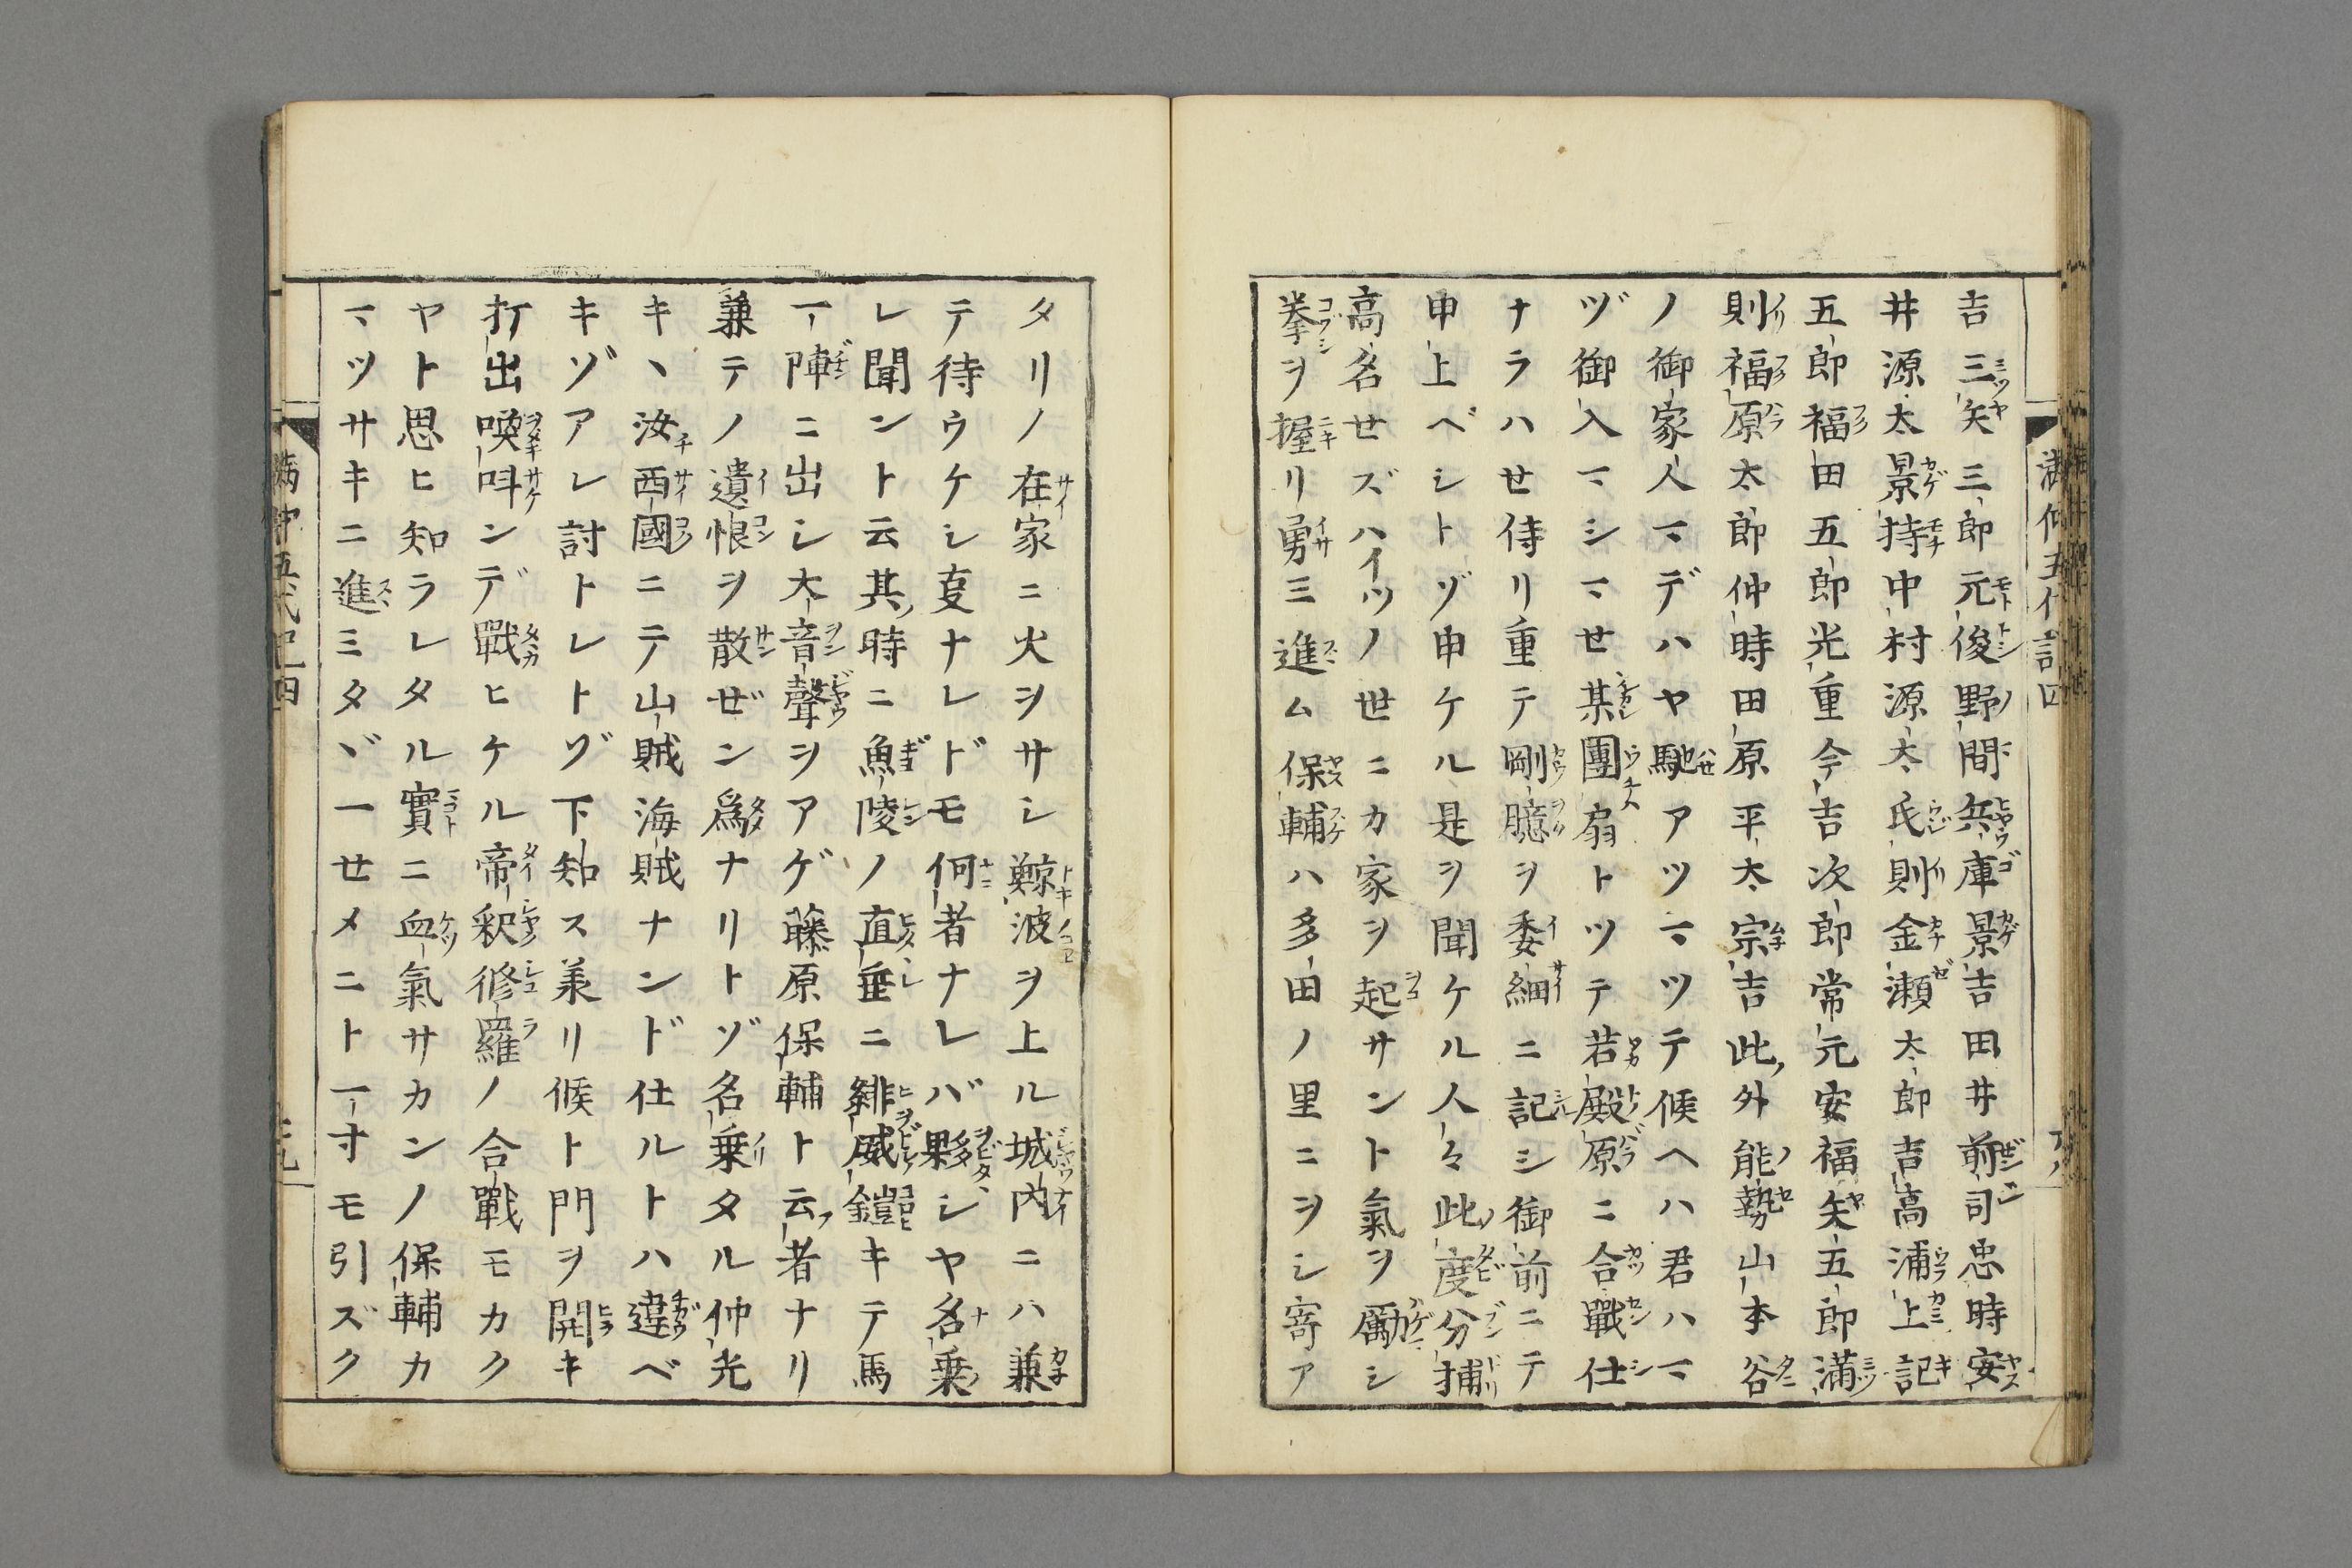 吉三矢三郎元俊野間兵庫景吉田井前司忠時安
井源太景持中村源太氏則金瀬太郎吉高浦上記
五郎福田五郎光重今吉次郎常元安福矢五郎満
則福原太郎仲時田原平太宗吉此外能勢山本谷
ノ御家人マデハヤ馳アツマツテ候ヘハ君ハマ
ヅ御入マシマセ某團扇トツテ若殿原ニ合戰仕
ナラハセ侍リ重テ剛臆ヲ委細ニ記シ御前ニテ
申上ベシトゾ申ケル是ヲ聞ケル人々此度分捕
高名セズハイツノ世ニカ家ヲ起サント氣ヲ勵シ
拳ヲ握リ勇ミ進ム保輔ハ多田ノ里ニヲシ寄ア
タリノ在家ニ火ヲサシ鯨波ヲ上ル城内ニハ兼
テ待ウケシ叓ナレドモ何者ナレバ夥シヤ名乗
レ聞ント云其時ニ魚陵ノ直垂ニ緋威鎧キテ馬
一陣ニ出シ大音聲ヲアゲ藤原保輔ト云者ナリ
兼テノ遺恨ヲ散ぜン爲ナリトゾ名乗タル仲光
キヽ汝西國ニテ山賊海賊ナンド仕ルトハ違ベ
キゾアレ討トレトゾ下知ス美リ候ト門ヲ開キ
打出喚叫ンデ戰ヒケル帝釈修羅ノ合戰モカク
ヤト思ヒ知ラレタル實ニ血氣サカンノ保輔カ
マツサキニ進ミタヾ一セメニト一寸モ引ズク